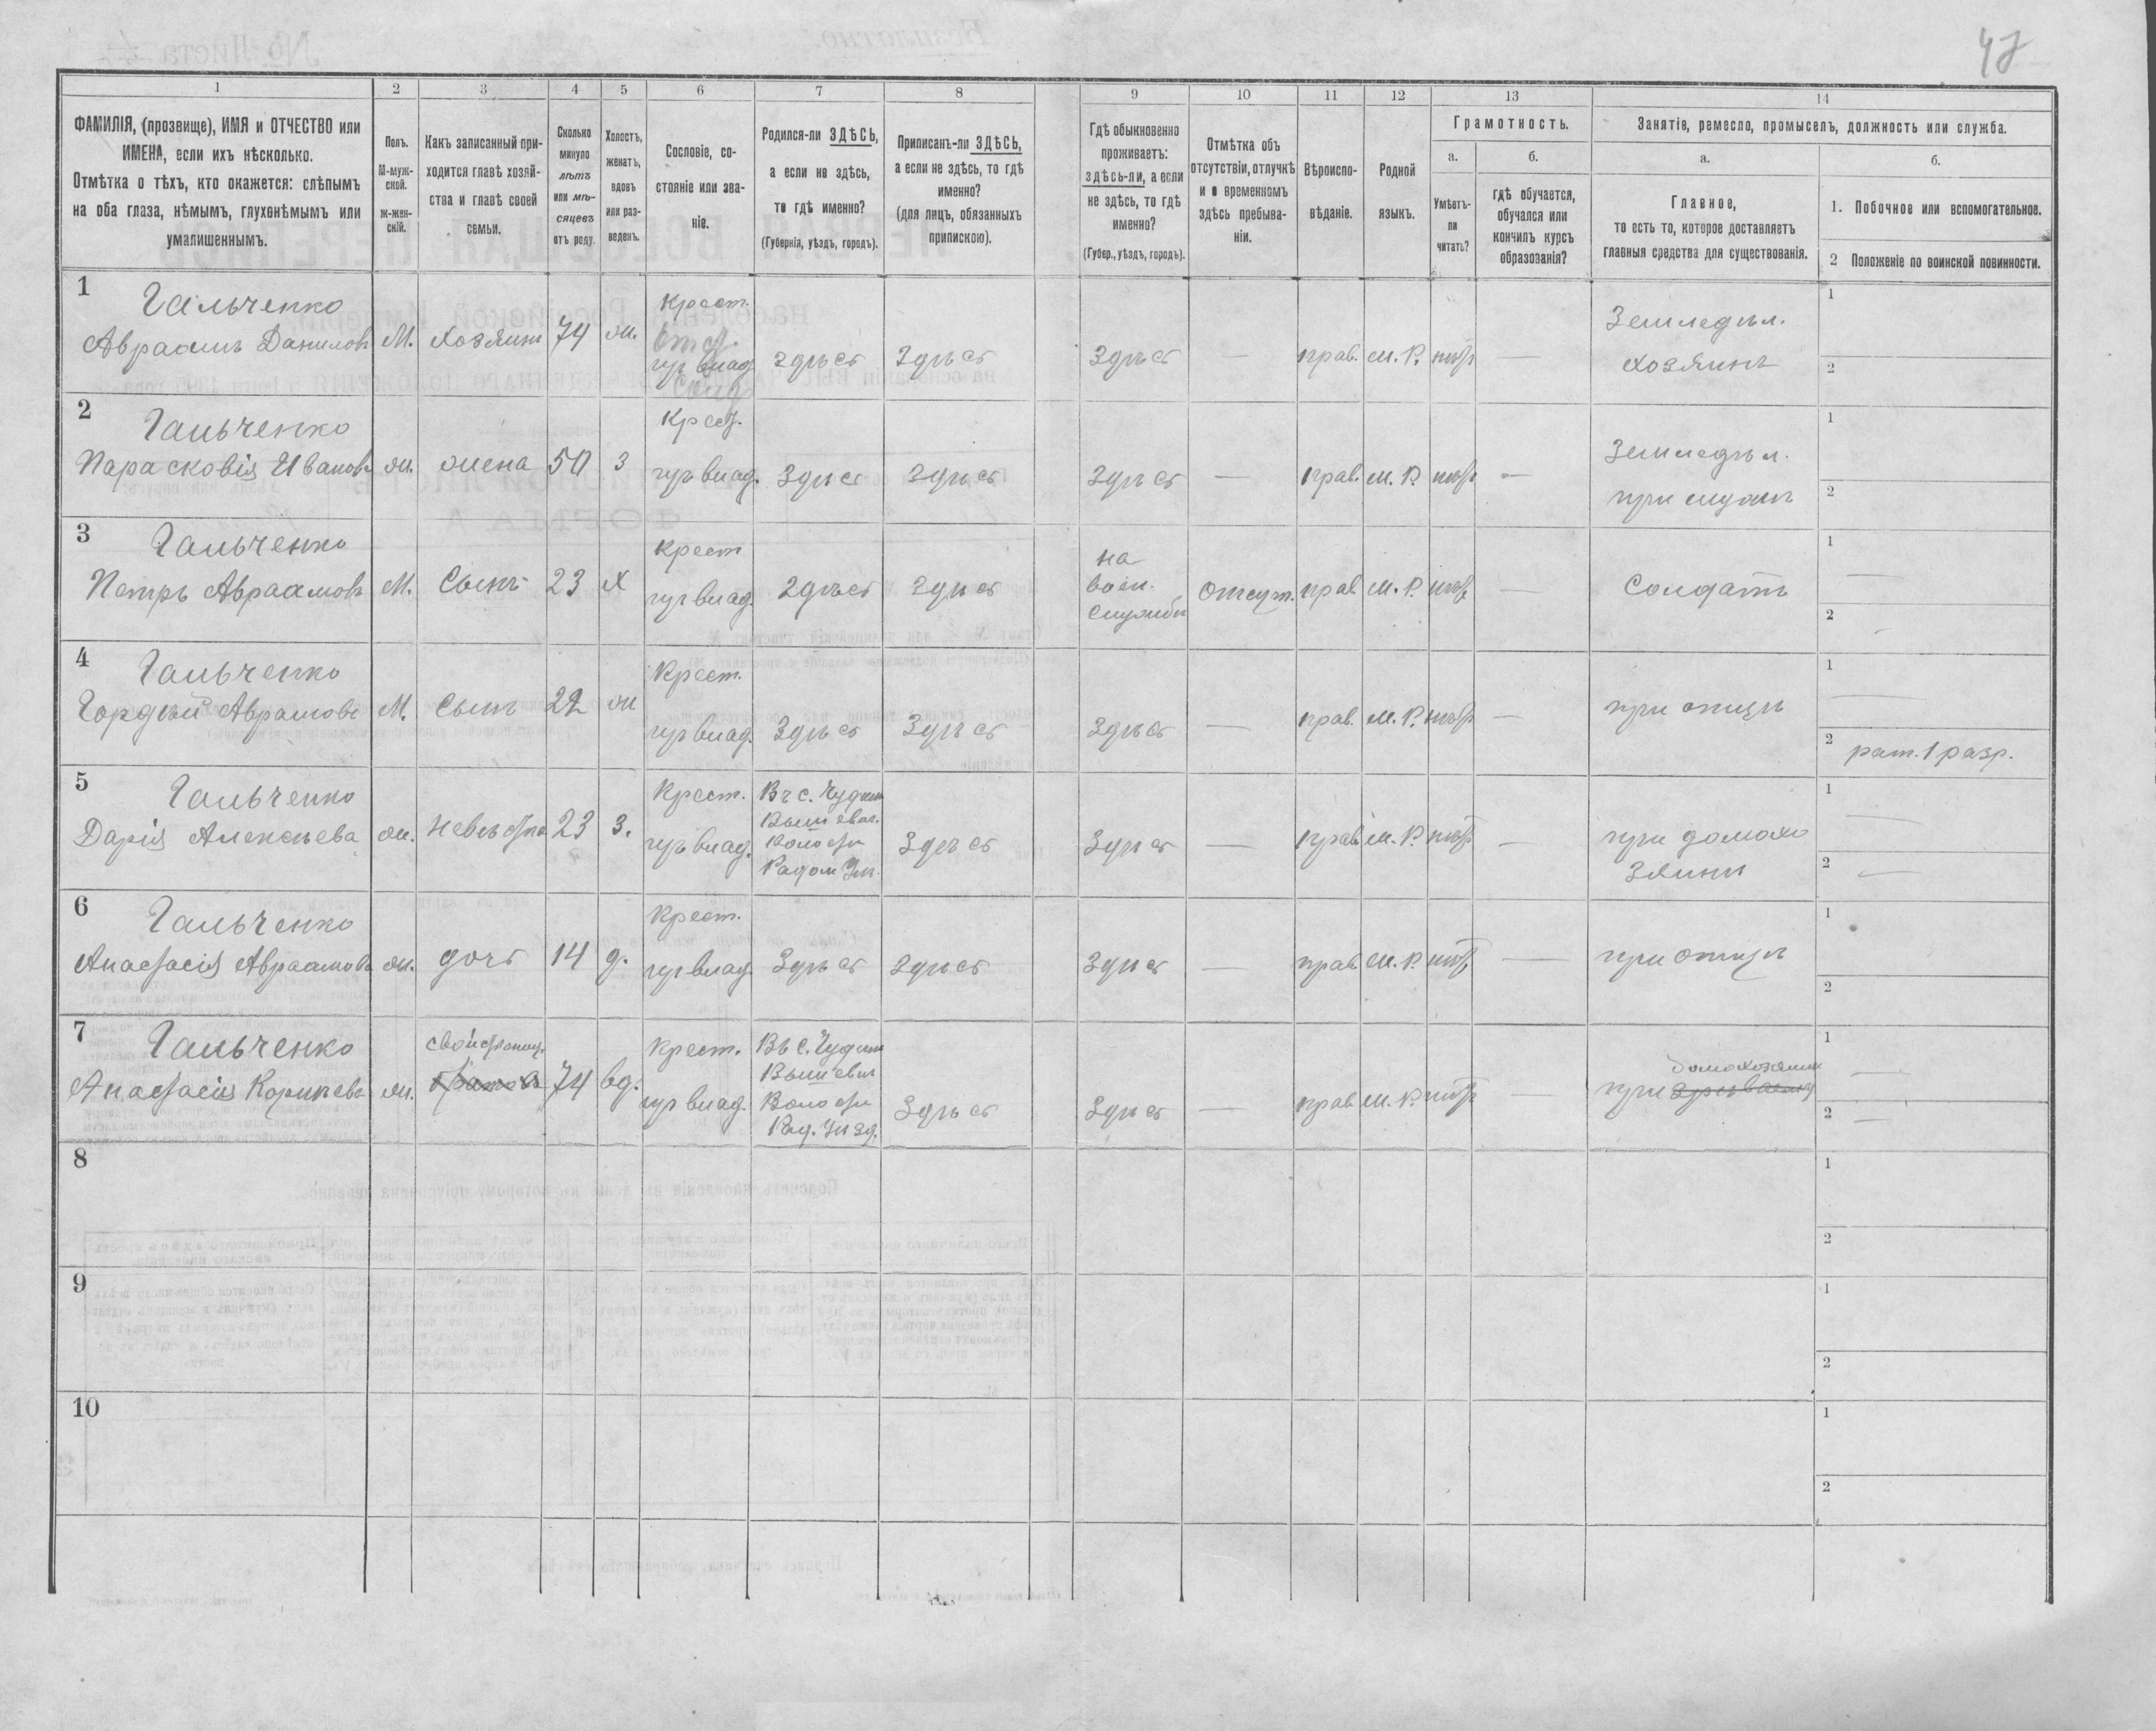 47
1
2
3
4
5
6
7
8
9
10
11
12
13
14
ФАМИЛІЯ, (прозвище), ИМЯ и ОТЧЕСТВО или
ИМЕНА, если ихъ нѣсколько.
Отмѣтка о тѣхъ, кто окажется: слѣпымъ
на оба глаза, нѣмымъ, глухонѣмымъ или
умалишеннымъ.
Полъ.
М-муж-
ской.
ж-жен-
скій.
Какъ записанный при-
ходится главѣ хозяй-
ства и главѣ своей
семьи.
Сколько
минуло
лѣтъ
или мѣ-
сяцевъ
отъ роду.
Холостъ,
женатъ,
вдовъ
или раз-
веденъ.
Сословіе, со-
стояніе или зва-
ніе.
Родился-ли ЗДѢСЬ,
а если не здѣсь,
то гдѣ именно?
(Губернія, уѣздъ, городъ).
Приписанъ-ли ЗДѢСЬ,
а если не здѣсь, то гдѣ
именно?
(для лицъ, обязанныхъ
припискою).
Гдѣ обыкновенно
проживаетъ:
здѣсь-ли, а если
не здѣсь, то гдѣ
именно?
(Губер., уѣздъ, городъ).
Отмѣтка объ
отсутствіи, отлучкѣ
и о временномъ
здѣсь пребыва-
ніи.
Вѣроиспо-
вѣданіе.
Родной
языкъ.
Грамотность.
а.
Умѣетъ-
ли
читать?
б.
гдѣ обучается,
обучался или
кончилъ курсъ
образованія?
Занятіе, ремесло, промыселъ, должность или служба.
а.
Главное,
то есть то, которое доставляетъ
главныя средства для существованія.
б.
1. Побочное или вспомогательное.
2 Положеніе по воинской повинности.
1
Гальченко
Авраамъ Даниловъ М. хозяинъ 74 ж.
Крест.
влад.
здѣсь здѣсь здѣсь — прав. М. Р. нѣтъ
Земледѣл.
хозяинъ
1
2
2
Гальченко
Парасковія Иванова ж. жена 50 з
Крест.
влад. здѣсь здѣсь здѣсь — прав. М. Р. нѣтъ —
Земледѣл.
при мужѣ
1
2
3
Гальченко
Петръ Авраамовъ М. Сынъ 23 х
Крест
влад. здѣсь здѣсь
на
воен.
службѣ
Отсут. прав М. Р. нѣтъ —
Солдатъ
1
—
2
4
Гальченко
Гордѣй Авраамовъ М. Сынъ 22 ж
Крест.
влад. здѣсь здѣсь здѣсь — прав. М. Р. нѣтъ —
при отцѣ
1
—
2 рат. 1 разр.
5
Гальченко
Дарія Алексѣева ж. невѣстка 23 з.
Крест.
влад.
Въ с. Чудинѣ
Вышевич.
Волости
Радом Уѣз.
здѣсь здѣсь — прав М. Р. нѣтъ —
при домохо
зяинѣ
1
—
2
—
6
Гальченко
Анастасія Авраамова ж. дочь 14 д.
Крест.
влад. здѣсь здѣсь здѣсь — прав М. Р. нѣтъ —
при отцѣ
1
2
7
Гальченко
Анастасія ж. 74 вд.
Крест.
влад.
Въ с. Чудинѣ
Вышевич
Волости
Рад. Уѣзд.
здѣсь здѣсь — прав М. Р. нѣтъ —
домохозяинѣ
при
1
—
2
—
8
1
2
9
1
2
10
1
2